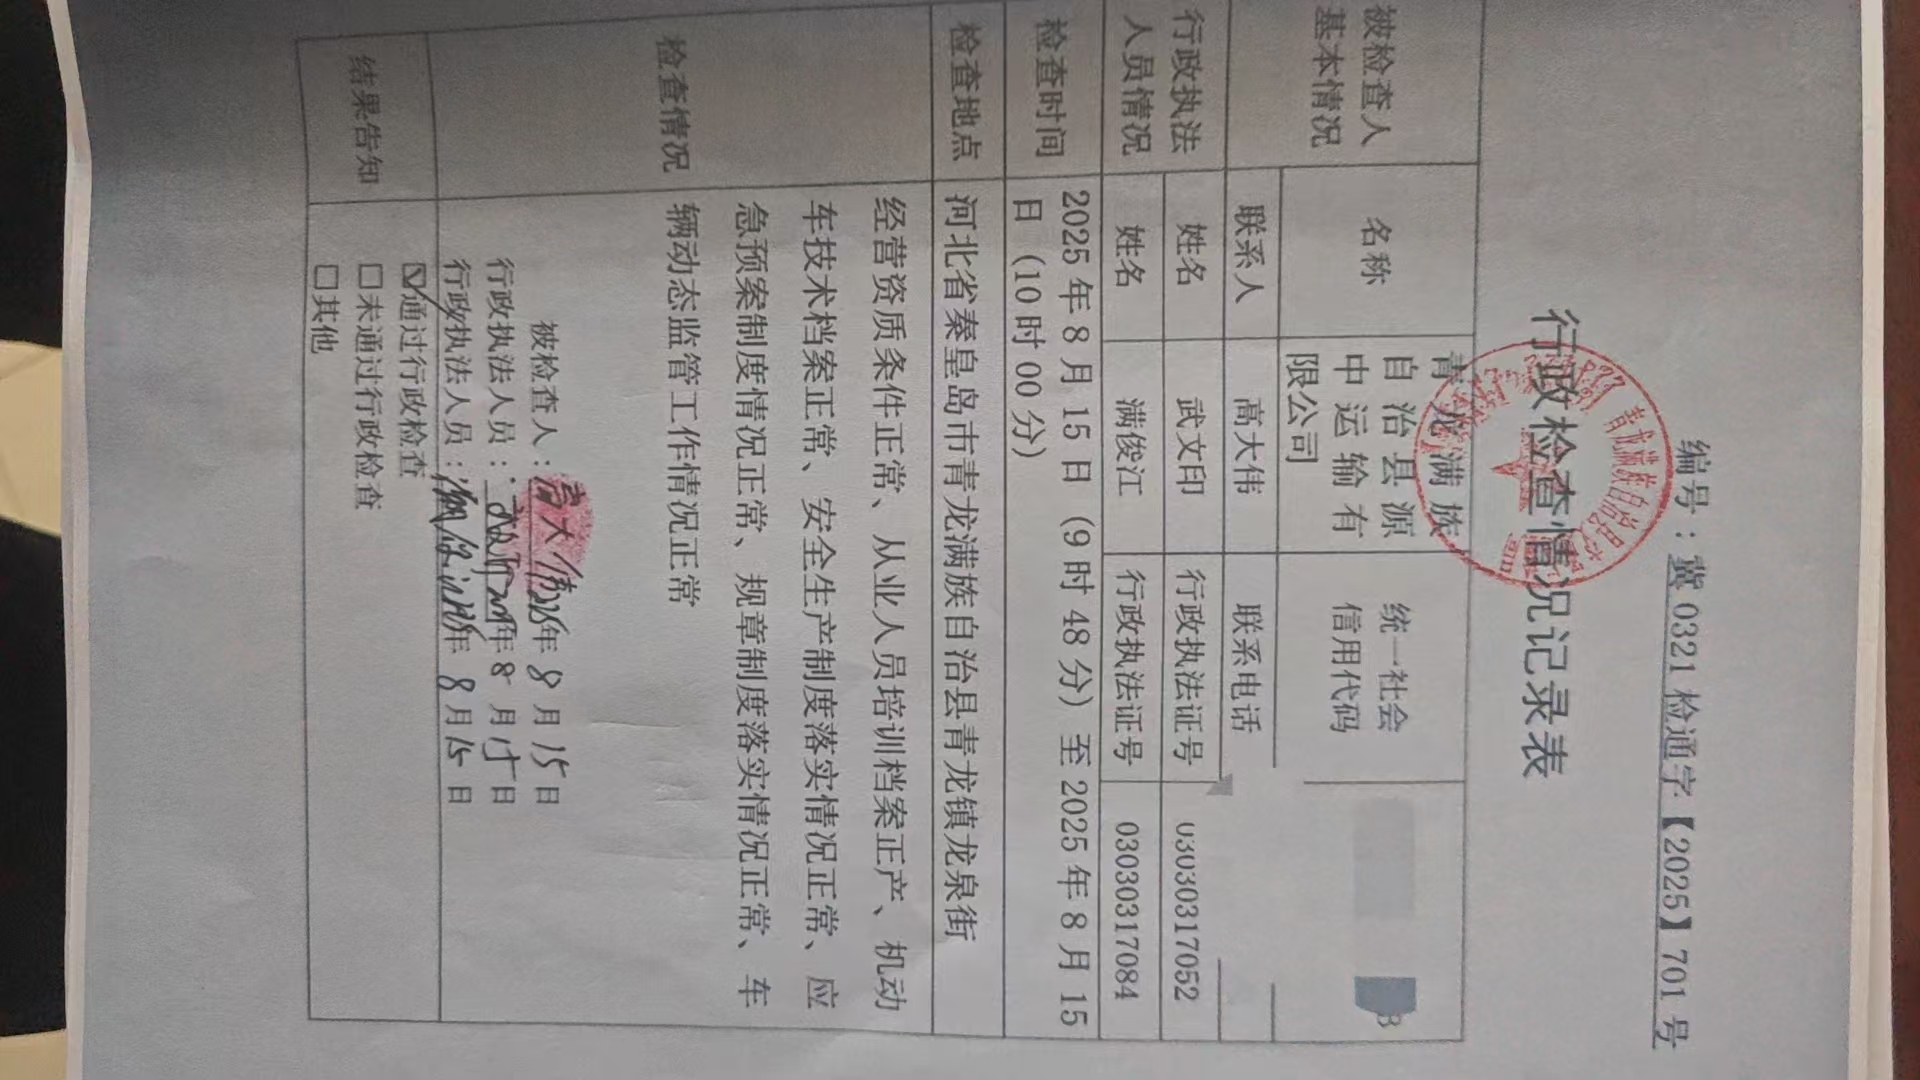 编号：冀 0321 检通字【2025】701 号
行政检查情况记录表
青龙满族自治县
被检查人
基本情况
名称
青龙满族
自治县源
中运输有
限公司
统一社会
信用代码
B
联系人
高大伟
联系电话
行政执法
人员情况
姓名
武文印
行政执法证号
03030317052
姓名
满俊江
行政执法证号
03030317084
检查时间
2025 年 8 月 15 日（9 时 48 分）至 2025 年 8 月 15
日（10 时 00 分）
检查地点
河北省秦皇岛市青龙满族自治县青龙镇龙泉街
检查情况
经营资质条件正常、从业人员培训档案正产、机动
车技术档案正常、安全生产制度落实情况正常、应
急预案制度情况正常、规章制度落实情况正常、车
辆动态监管工作情况正常
被检查人：高大伟 2025年 8 月 15 日
行政执法人员：武文印 2025年 8 月 15 日
行政执法人员：满俊江 2025年 8 月 15 日
结果告知
☑通过行政检查
□未通过行政检查
□其他